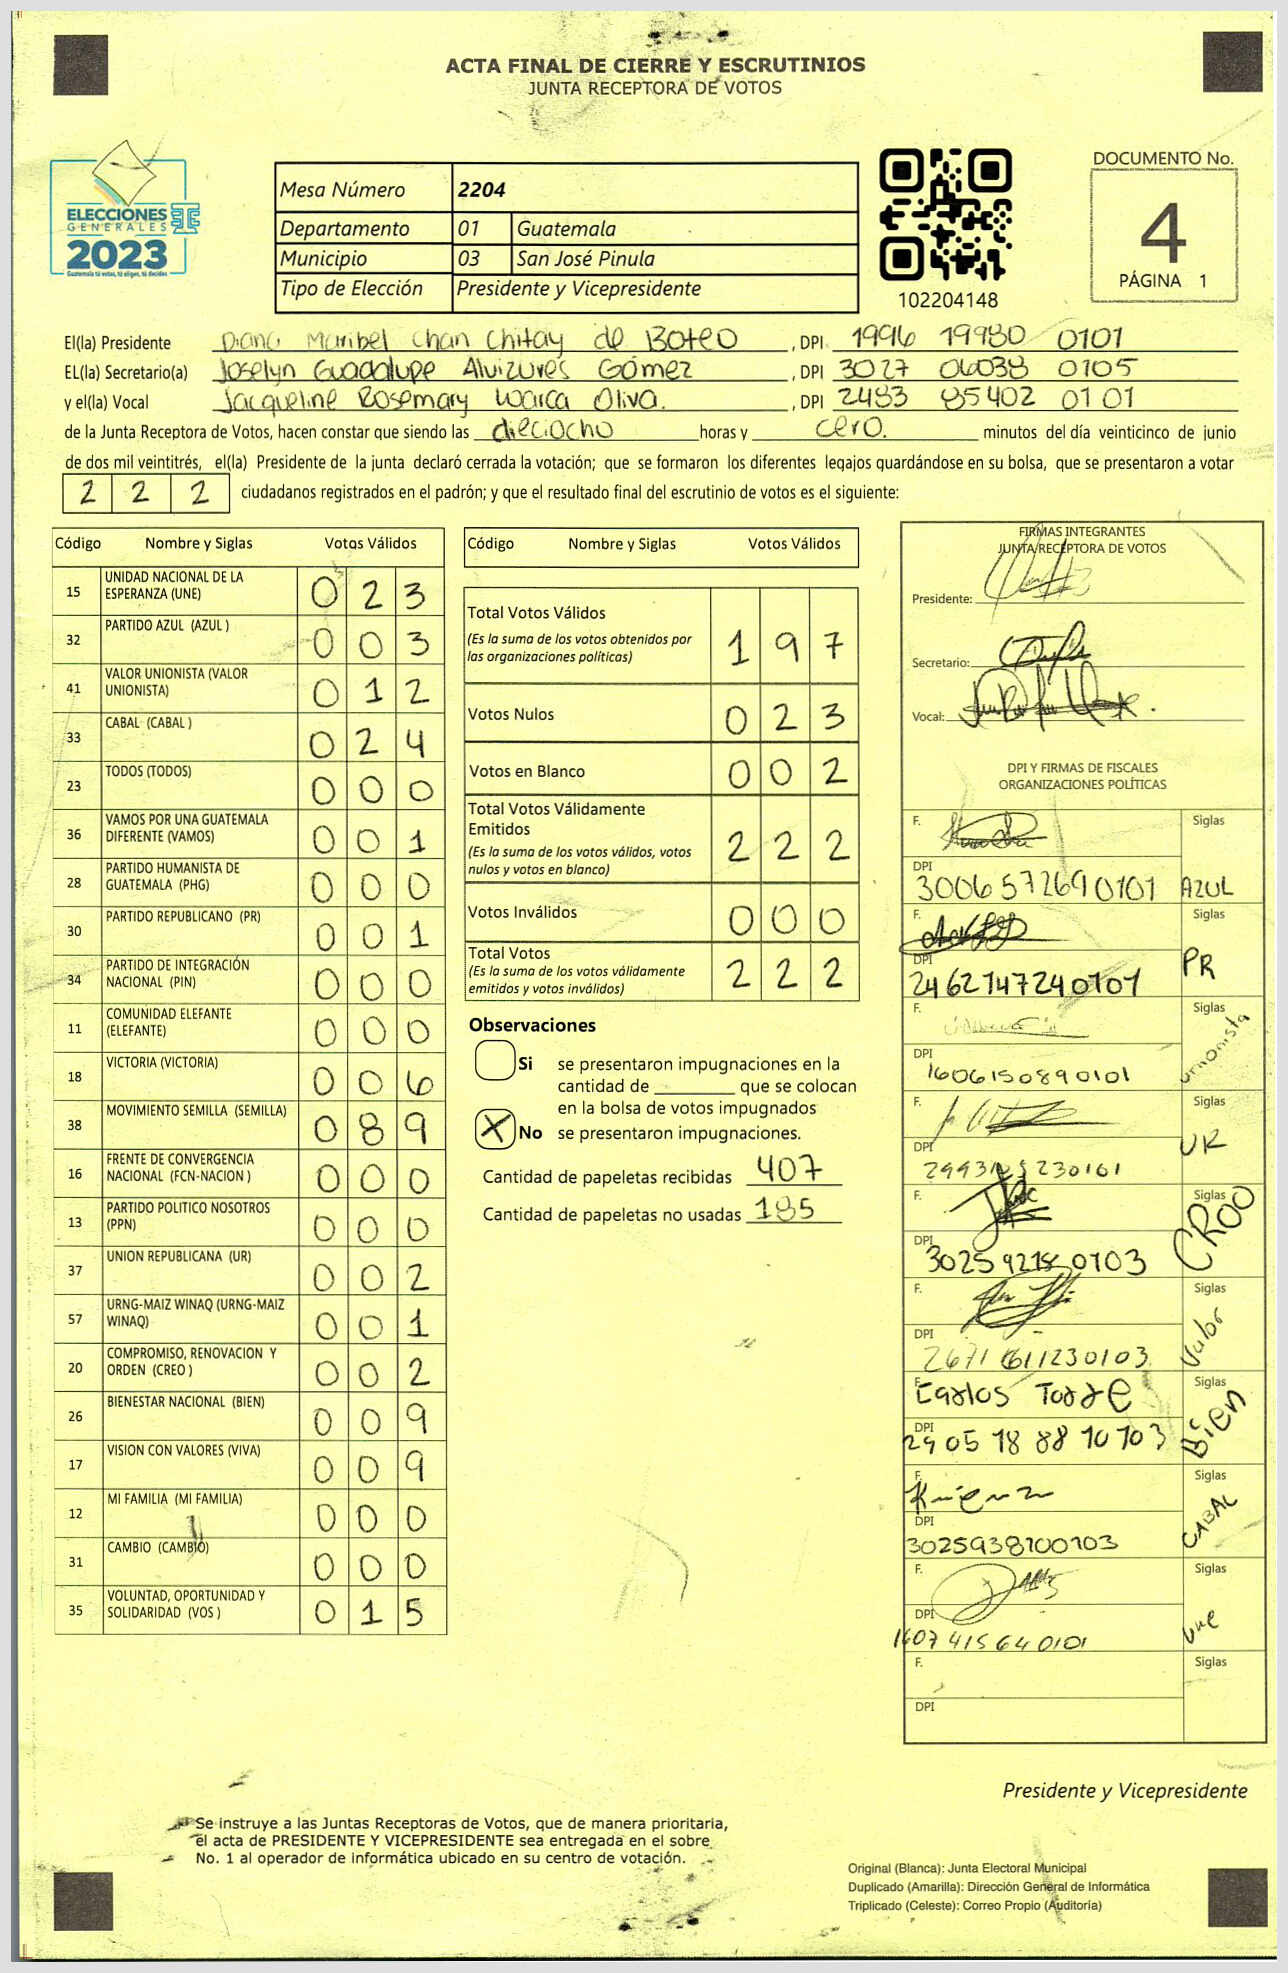 ACTA FINAL DE CIERRE Y ESCRUTINIOS
JUNTA RECEPTORA DE VOTOS
ELECCIONES
GENERALES
2023
Guatemala tú votas, tú eliges, tú decides
Mesa Número 2204
Departamento 01 Guatemala
Municipio 03 San José Pinula
Tipo de Elección Presidente y Vicepresidente
102204148
DOCUMENTO No.
4
PÁGINA 1
El(la) Presidente Diana Maribel Chan Chitay de Boteo , DPI 1996 19980 0101
EL(la) Secretario(a) Joselyn Guadalupe Alvizures Gómez , DPI 3027 06038 0105
y el(la) Vocal Jacqueline Rosemary Warca Oliva. , DPI 2483 85402 0101
de la Junta Receptora de Votos, hacen constar que siendo las dieciocho horas y cero. minutos del día veinticinco de junio
de dos mil veintitrés, el(la) Presidente de la junta declaró cerrada la votación; que se formaron los diferentes legajos guardándose en su bolsa, que se presentaron a votar
2 2 2 ciudadanos registrados en el padrón; y que el resultado final del escrutinio de votos es el siguiente:
Código Nombre y Siglas Votos Válidos
15 UNIDAD NACIONAL DE LA ESPERANZA (UNE) 0 2 3
32 PARTIDO AZUL (AZUL ) 0 0 3
41 VALOR UNIONISTA (VALOR UNIONISTA) 0 1 2
33 CABAL (CABAL ) 0 2 4
23 TODOS (TODOS) 0 0 0
36 VAMOS POR UNA GUATEMALA DIFERENTE (VAMOS) 0 0 1
28 PARTIDO HUMANISTA DE GUATEMALA (PHG) 0 0 0
30 PARTIDO REPUBLICANO (PR) 0 0 1
34 PARTIDO DE INTEGRACIÓN NACIONAL (PIN) 0 0 0
11 COMUNIDAD ELEFANTE (ELEFANTE) 0 0 0
18 VICTORIA (VICTORIA) 0 0 6
38 MOVIMIENTO SEMILLA (SEMILLA) 0 8 9
16 FRENTE DE CONVERGENCIA NACIONAL (FCN-NACION ) 0 0 0
13 PARTIDO POLITICO NOSOTROS (PPN) 0 0 0
37 UNION REPUBLICANA (UR) 0 0 2
57 URNG-MAIZ WINAQ (URNG-MAIZ WINAQ) 0 0 1
20 COMPROMISO, RENOVACION Y ORDEN (CREO ) 0 0 2
26 BIENESTAR NACIONAL (BIEN) 0 0 9
17 VISION CON VALORES (VIVA) 0 0 9
12 MI FAMILIA (MI FAMILIA) 0 0 0
31 CAMBIO (CAMBIO) 0 0 0
35 VOLUNTAD, OPORTUNIDAD Y SOLIDARIDAD (VOS ) 0 1 5
Código Nombre y Siglas Votos Válidos
Total Votos Válidos 1 9 7
(Es la suma de los votos obtenidos por
las organizaciones políticas)
Votos Nulos 0 2 3
Votos en Blanco 0 0 2
Total Votos Válidamente
Emitidos 2 2 2
(Es la suma de los votos válidos, votos
nulos y votos en blanco)
Votos Inválidos 0 0 0
Total Votos 2 2 2
(Es la suma de los votos válidamente
emitidos y votos inválidos)
Observaciones
Si se presentaron impugnaciones en la
cantidad de ________ que se colocan
en la bolsa de votos impugnados
X No se presentaron impugnaciones.
Cantidad de papeletas recibidas 407
Cantidad de papeletas no usadas 185
FIRMAS INTEGRANTES
JUNTA RECEPTORA DE VOTOS
Presidente:
Secretario:
Vocal:
DPI Y FIRMAS DE FISCALES
ORGANIZACIONES POLÍTICAS
F. Siglas
DPI
3006572690101 AZUL
F. Siglas
DPI PR
2462147240101
F. Siglas
DPI unionista
1606150890101
F. Siglas
DPI UR
F. Siglas
DPI CREO
F. Siglas
DPI Valor
2671611230103
F. Carlos Torre Siglas
DPI Bien
2905188810103
F. Siglas
DPI CABAL
3025938100103
F. Siglas
DPI une
1607415640101
F. Siglas
DPI
Presidente y Vicepresidente
Se instruye a las Juntas Receptoras de Votos, que de manera prioritaria,
el acta de PRESIDENTE Y VICEPRESIDENTE sea entregada en el sobre
No. 1 al operador de informática ubicado en su centro de votación.
Original (Blanca): Junta Electoral Municipal
Duplicado (Amarilla): Dirección General de Informática
Triplicado (Celeste): Correo Propio (Auditoría)